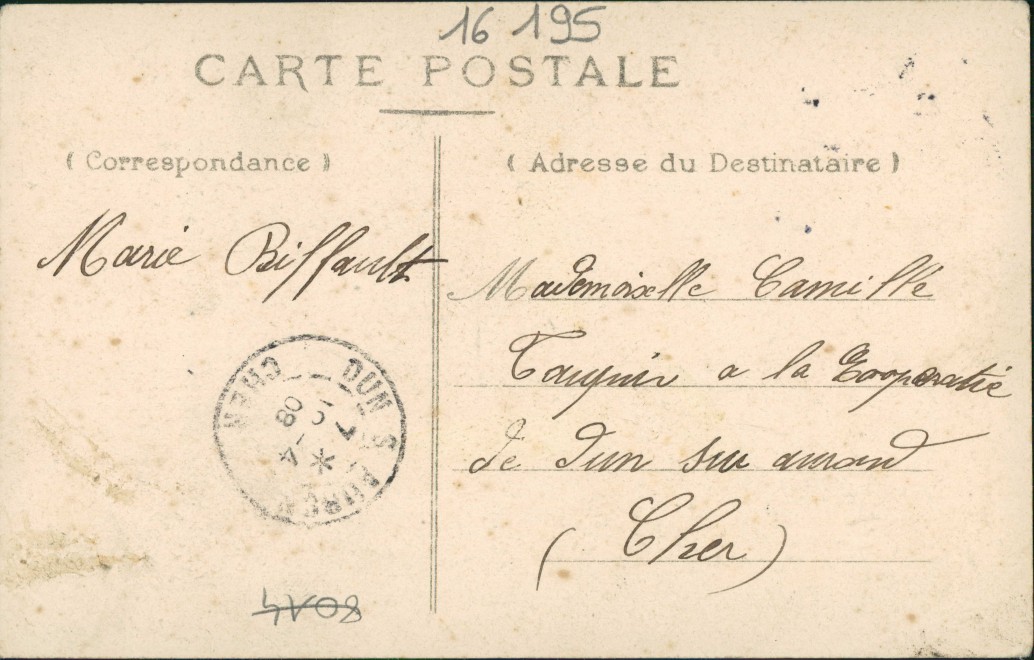 16 195
CARTE POSTALE
( Correspondance )
( Adresse du Destinataire )
Marie Biffault
Mademoiselle Camille
a la Cooperative
de Dun sur auron
( Cher )
DUN S AURON
CHER
08
4V08